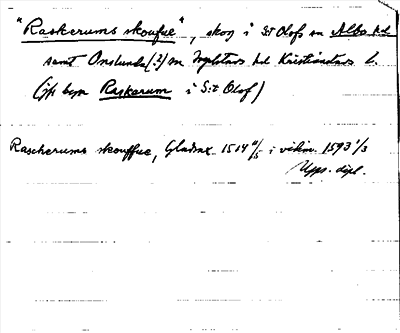 "Raskerums skoufue", skog i S:t Olofs sn Albo hd
samt Onslunda (?) sn Ingelstads hd Kristianstads l.
(jfr byn Raskarum i S:t Olof)
Rascherums skouffue, Gladsax 1514 i vidim. 1593 1/3
Upps. dipl.